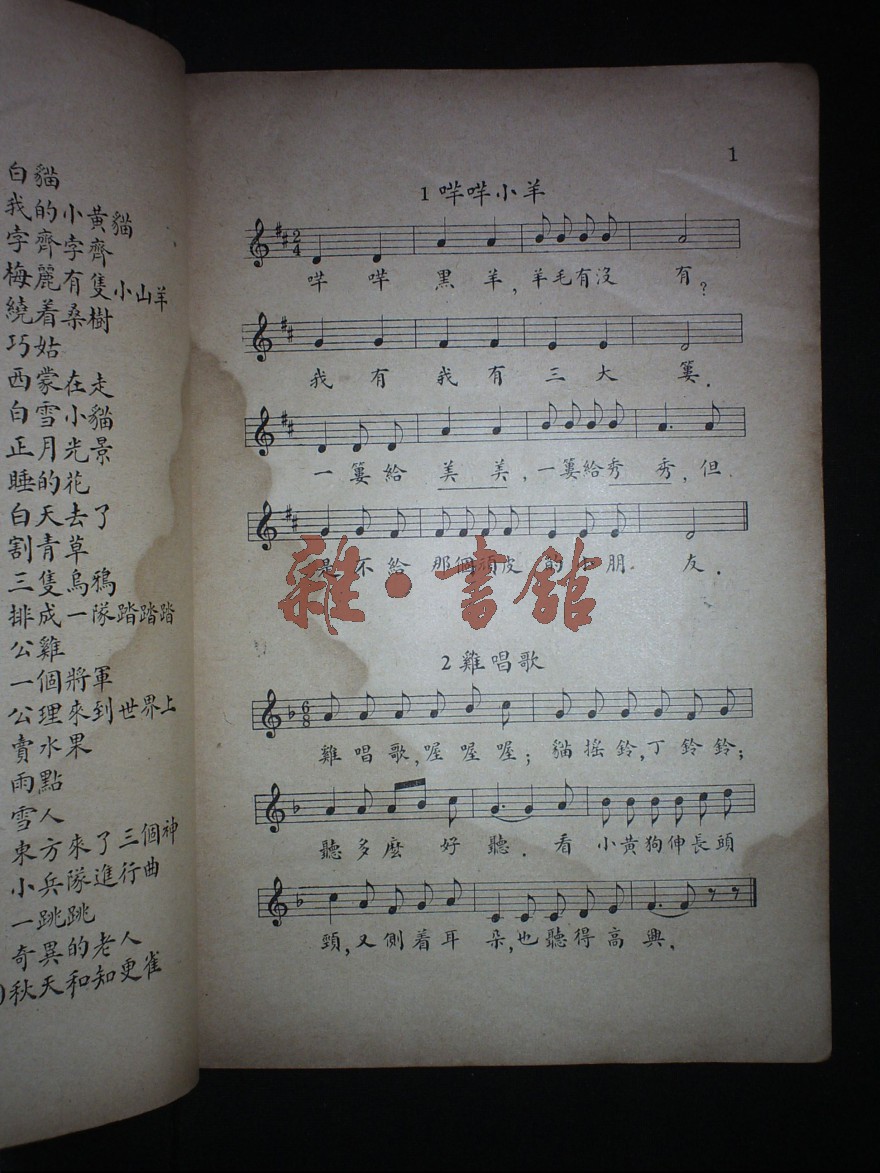 白貓
我的小黃貓
字齊字齊
梅麗有隻小山羊
繞着桑樹
巧姑
西蒙在走
白雪小貓
正月光景
睡的花
白天去了
割青草
三隻烏鴉
排成一隊踏踏踏
公雞
一個將軍
公理來到世界上
賣水果
雨點
雪人
東方來了三個神
小兵隊進行曲
一跳跳
奇異的老人
秋天和知更雀
1
1 咩咩小羊
2 4
咩咩黑羊,羊毛有沒有?
我有我有三大簍.
一簍給美美,一簍給秀秀,但
是不給那個頑皮的小朋友.
雜·書舘
2 雞唱歌
6 8
雞唱歌,喔喔喔;貓搖鈴,丁鈴鈴;
聽多麼好聽.看小黃狗伸長頭
頸,又側着耳朵,也聽得高興.